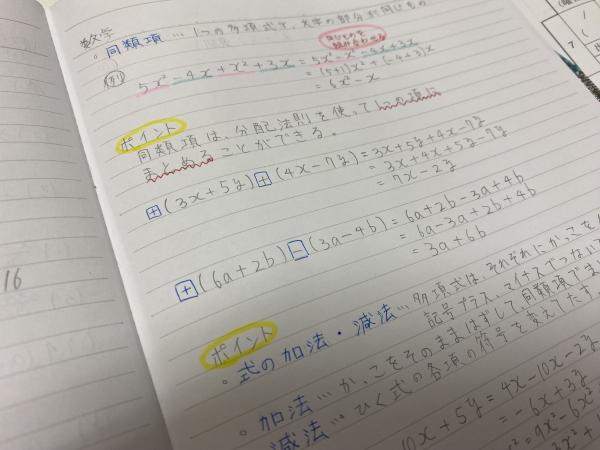 数学
・同類項…1つの多項式で、文字の部分が同じもの
例 5x²-4x+x²+3x=5x²+x²-4x+3x
=(5+1)x²+(-4+3)x
=6x²-x
ポイント
同類項は、分配法則を使って1つの項に
まとめることができる。
+(3x+5y)+(4x-7y)=3x+5y+4x-7y
=3x+4x+5y-7y
=7x-2y
+(6a+2b)-(3a-4b)=6a+2b-3a+4b
=6a-3a+2b+4b
=3a+6b
ポイント
・式の加法・減法…多項式は、それぞれにかっこを
記号プラス、マイナスでつない
・加法…かっこをそのままはずして同類項でま
減法…ひく式の各項の符号を変えてたす。
10x+5y=4x-10x-2y
=-6x+3y
=9x²-6x²
3x²+
16
7